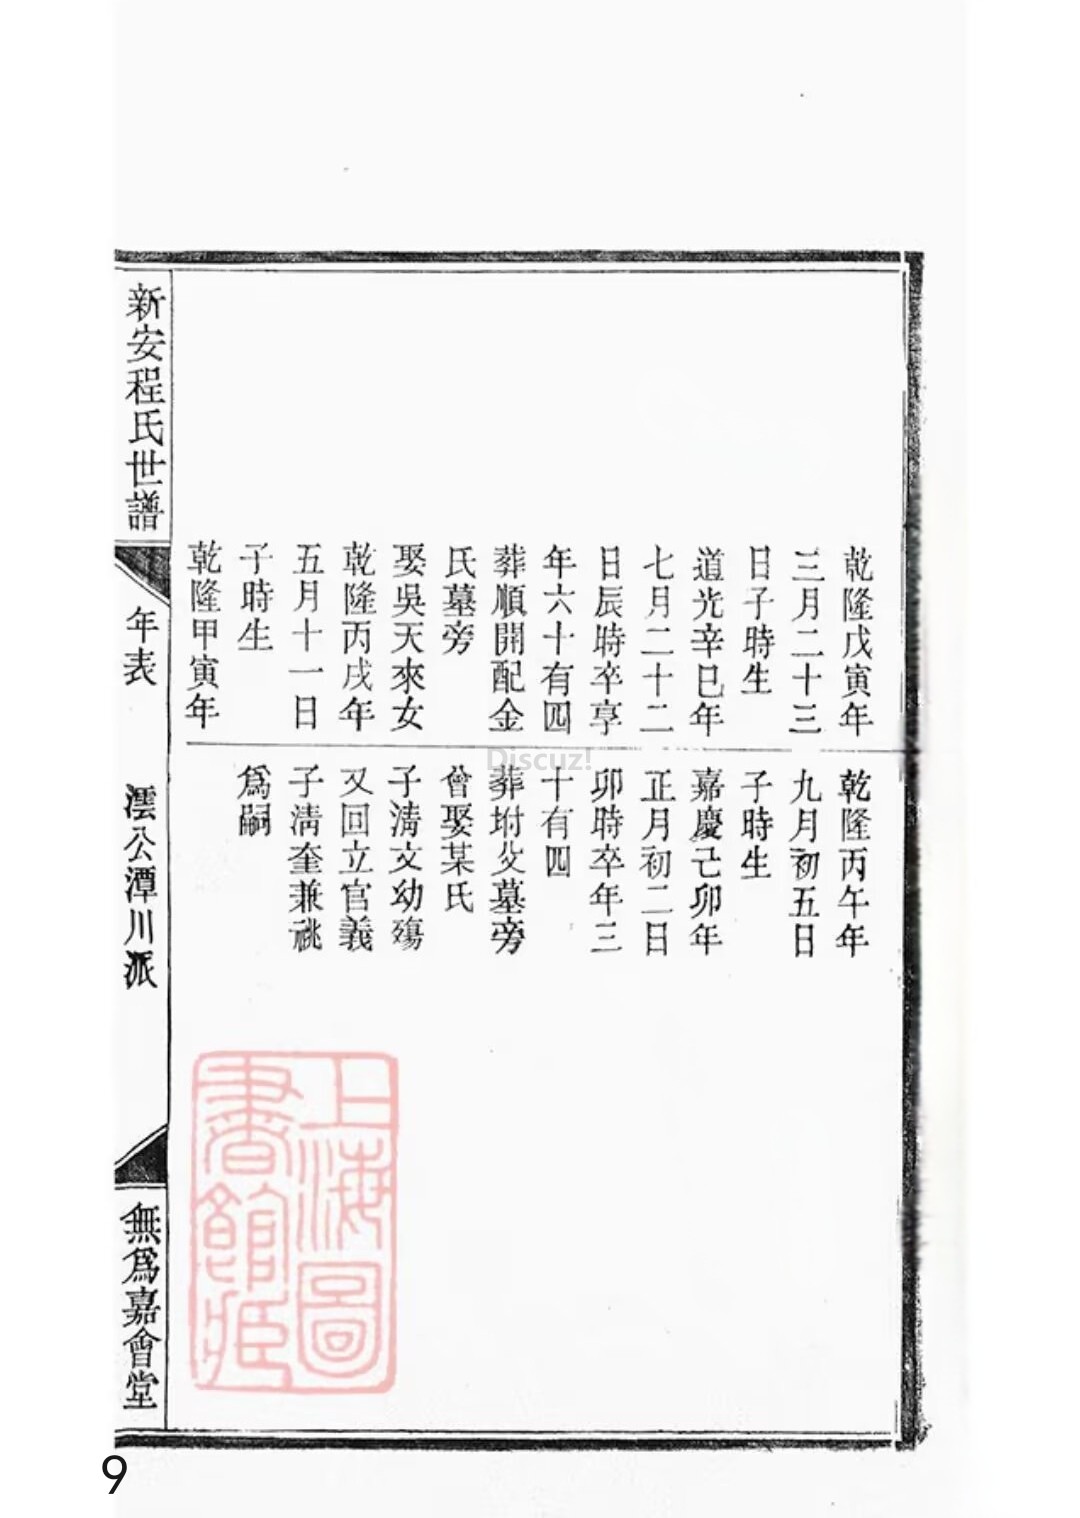 乾隆戊寅年
三月二十三
日子時生
道光辛巳年
七月二十二
日辰時卒享
年六十有四
葬順開配金
氏墓旁
娶吳天來女
乾隆丙戌年
五月十一日
子時生
乾隆甲寅年
乾隆丙午年
九月初五日
子時生
嘉慶己卯年
正月初二日
卯時卒年三
十有四
葬坿父墓旁
曾娶某氏
子淸文幼殤
又回立官義
子淸奎兼祧
爲嗣
新安程氏世譜
年表
澐公潭川派
無爲嘉會堂
上海圖
書館藏
Discuz!
9